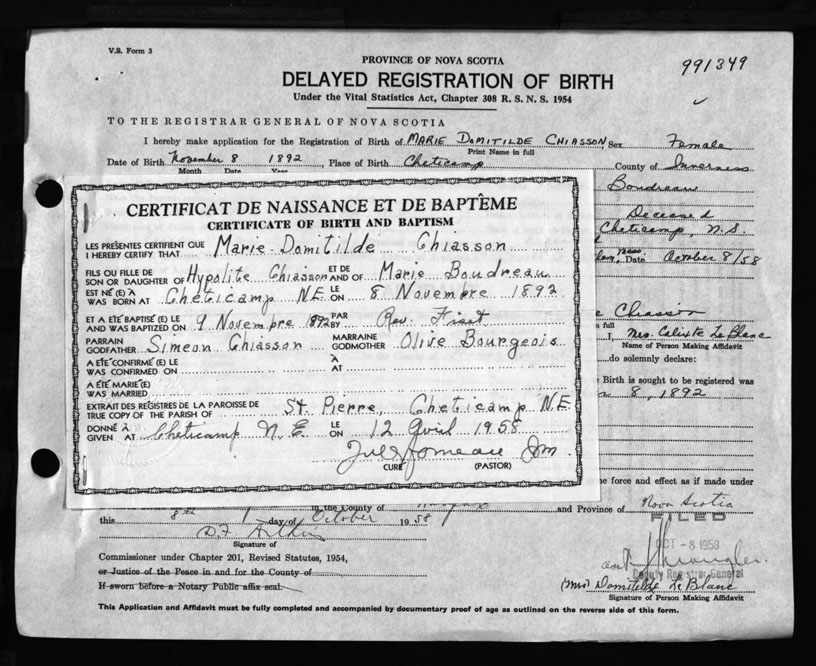 V.S. Form 3
991349
PROVINCE OF NOVA SCOTIA
DELAYED REGISTRATION OF BIRTH
Under the Vital Statistics Act, Chapter 308 R. S. N. S. 1954
TO THE REGISTRAR GENERAL OF NOVA SCOTIA
I hereby make application for the Registration of Birth of MARIE DOMITILDE CHIASSON, Sex Female
Print Name in full
Date of Birth November 8 1892, Place of Birth Cheticamp County of Inverness
Month Date Year
Boudreau
Deceased
Cheticamp, N.S.
Date October 8/58
CERTIFICAT DE NAISSANCE ET DE BAPTÊME
CERTIFICATE OF BIRTH AND BAPTISM
LES PRÉSENTES CERTIFIENT QUE
I HEREBY CERTIFY THAT Marie-Domitilde Chiasson
FILS OU FILLE DE
SON OR DAUGHTER OF Hypolite Chiasson ET DE AND OF Marie Boudreau
EST NÉ (E) À
WAS BORN AT Cheticamp N.E. LE ON 8 Novembre 1892
ET A ÉTÉ BAPTISÉ (E) LE
AND WAS BAPTIZED ON 9 Novembre 1892 PAR BY Rev. Fiset
PARRAIN
GODFATHER Simeon Chiasson MARRAINE GODMOTHER Olive Bourgeois
A ÉTÉ CONFIRMÉ (E) LE
WAS CONFIRMED ON À AT
A ÉTÉ MARIÉ (E)
WAS MARRIED
EXTRAIT DES REGISTRES DE LA PAROISSE DE
TRUE COPY OF THE PARISH OF St. Pierre, Cheticamp N.E.
DONNÉ À
GIVEN AT Cheticamp N.E. LE ON 12 Avril 1958
CURÉ (PASTOR)
Chiasson
n full
I, Mrs. Calixte LeBlanc
Name of Person Making Affidavit
do solemnly declare:
Birth is sought to be registered was
8, 1892
me force and effect as if made under
in the County of Halifax and Province of Nova Scotia
this 8th day of October 1958
FILED
OCT - 8 1958
Signature of
Commissioner under Chapter 201, Revised Statutes, 1954,
or Justice of the Peace in and for the County of
Deputy Registrar General
If sworn before a Notary Public affix seal.
(Mrs) Domitilde LeBlanc
Signature of Person Making Affidavit
This Application and Affidavit must be fully completed and accompanied by documentary proof of age as outlined on the reverse side of this form.